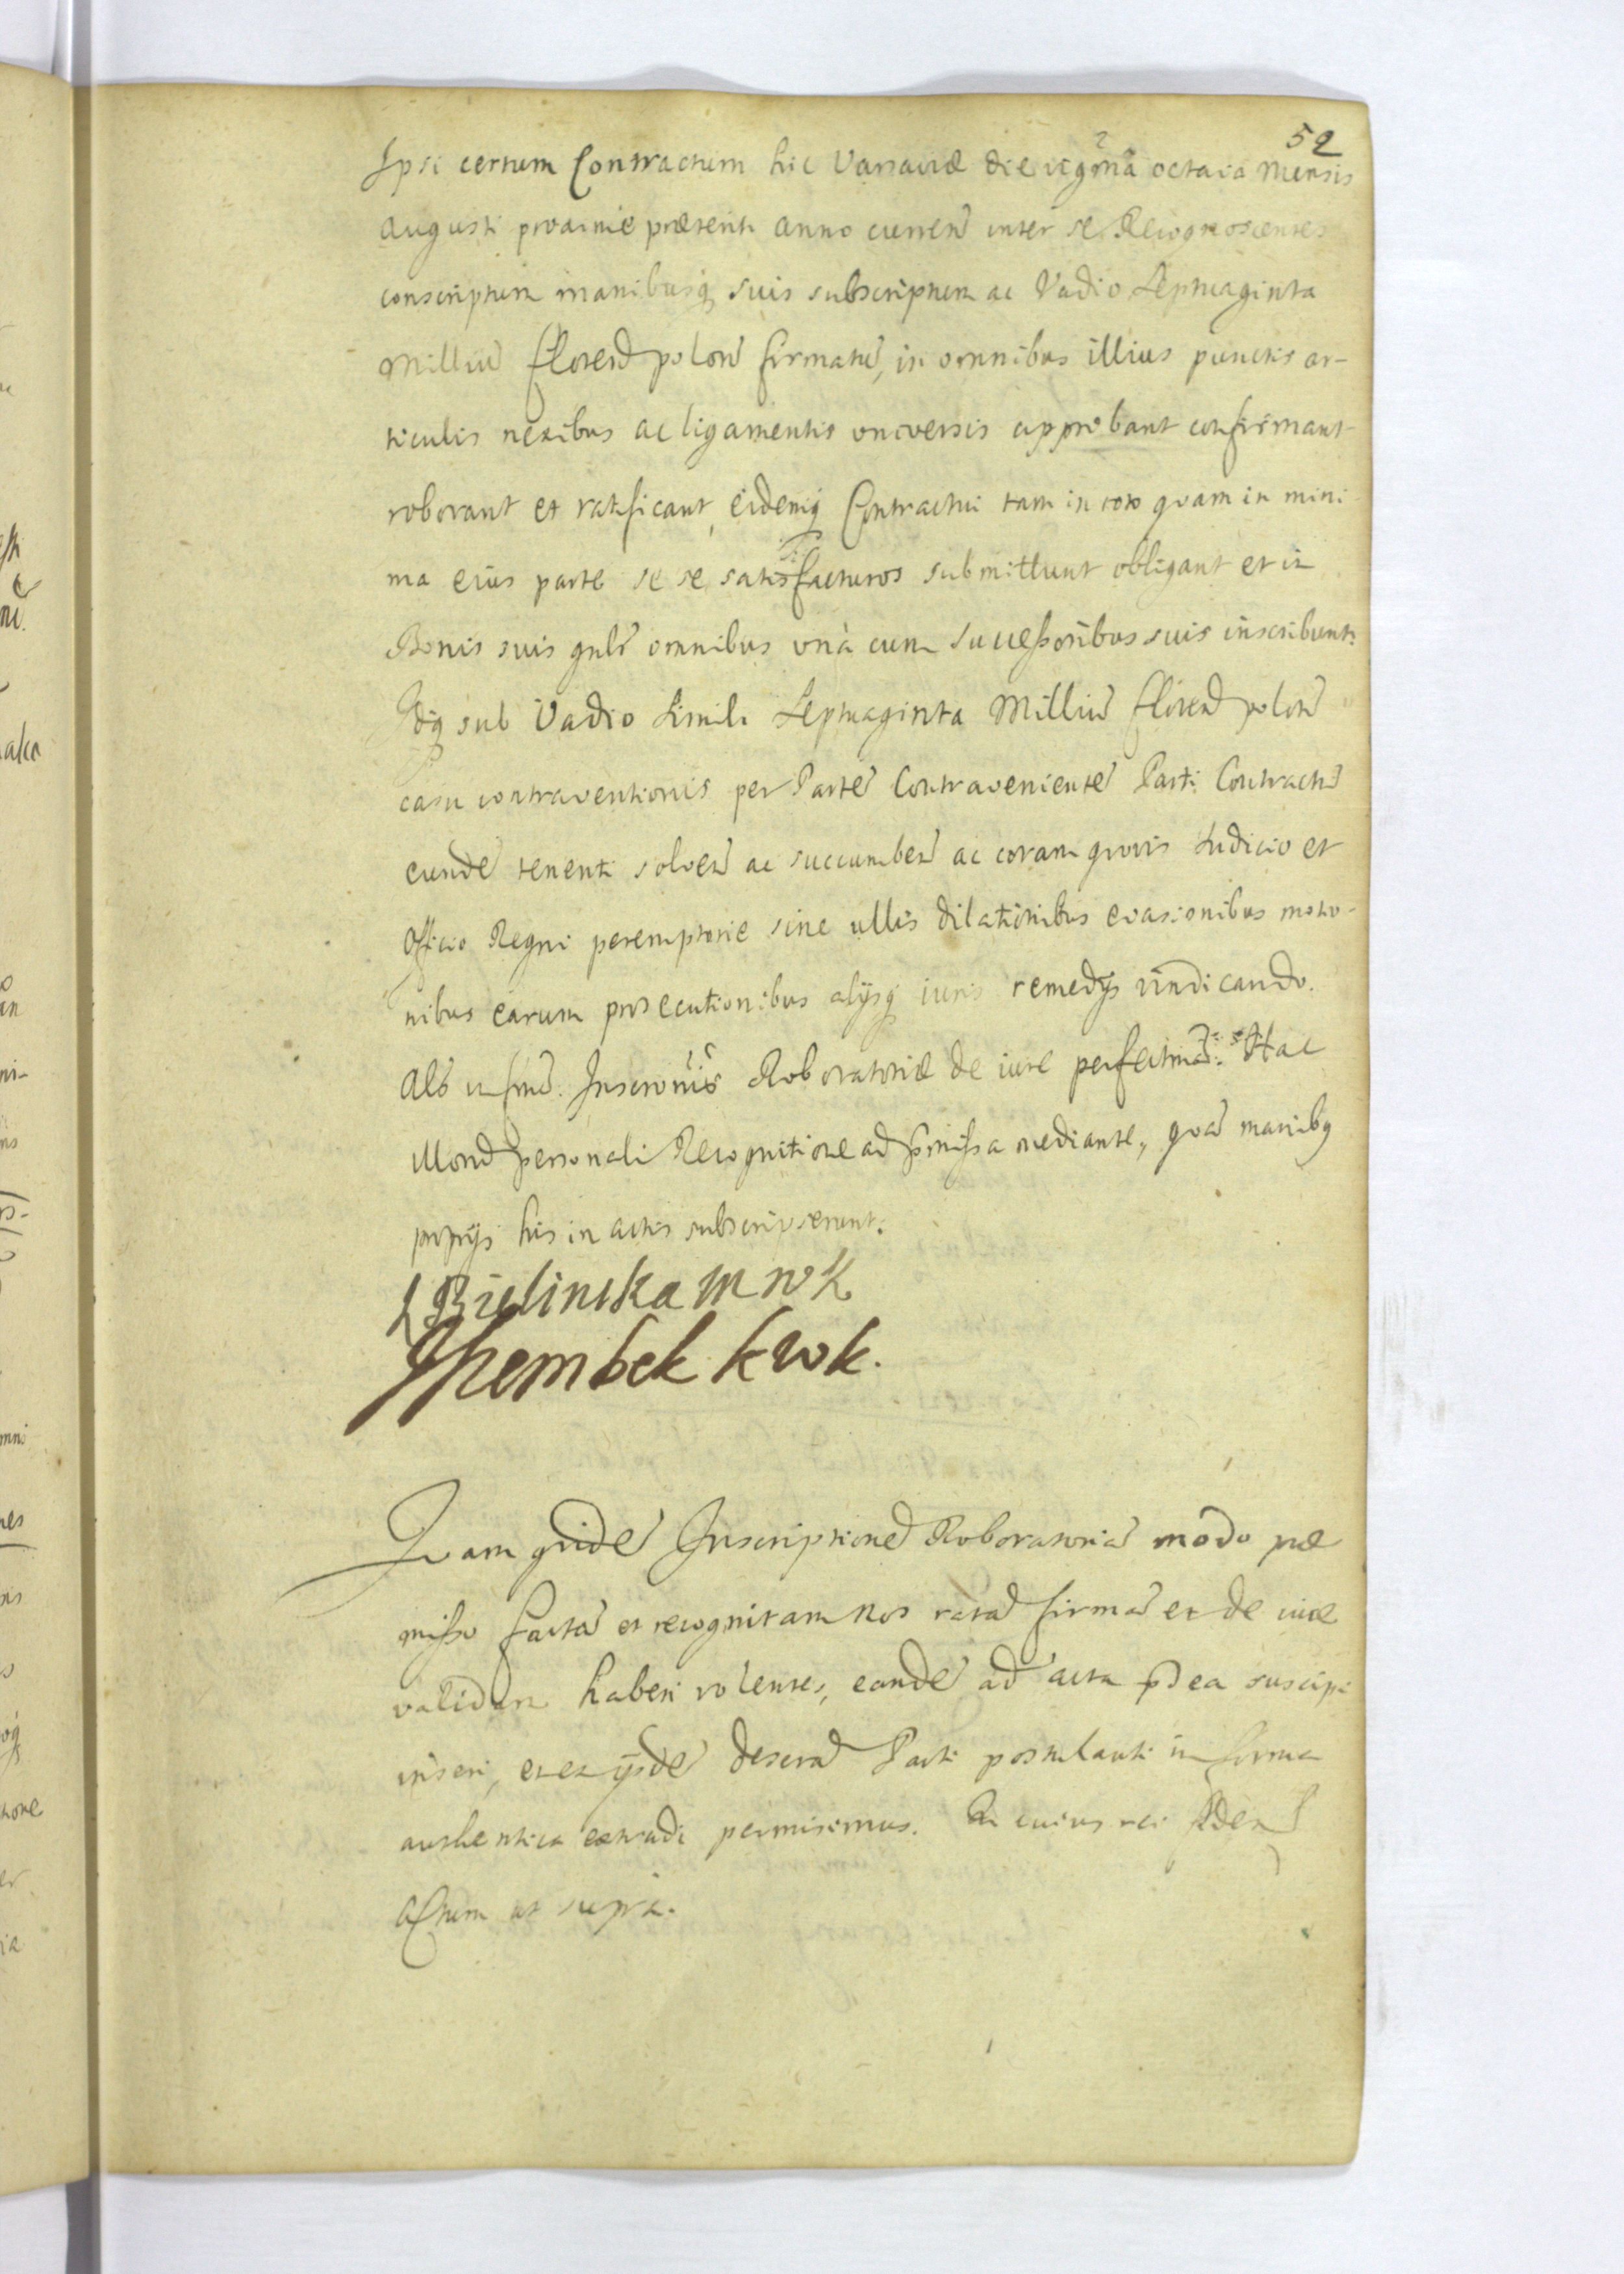 52
Ipsi certum Contractum hic Varsaviæ die vigīnā octava Mensis
Augusti proxīme præteriti anno curreñ inter se Recognoscentes
conscriptum manibusq suis subscriptum ac Vadio Septuaginta
Milliū floreñ poloñ firmatū, in omnibus illius punctis ar-
ticulis nexibus ac ligamentis universis approbant confirmant
roborant et ratificant, eidemq Contractui tam in toto quam in mini-
ma eius parte se se satisfacturos submittunt obligant et in
Bonis suis gnlr omnibus unà cum Successoribus suis inscribunt.
Idq sub Vadio simili Septuaginta Milliū floreñ poloñ
casu contraventionis per Partē Contravenientē Parti Contractū
eundē tenenti solveñ ac succumbeñ ac coram quovis Iudicio et
Officio Regni peremptorie sine ullis dilationibus evasionibus motio-
nibus earum prosecutionibus alijsq iuris remedijs vindicando.
Roboratoriæ de iure Hac
personali Recognitione ad pmissa mediante, quā manibq
proprijs his in actis subscripserunt.
L Bielinska M W K
Szembek k w k.
Quam quidē Inscriptionē Roboratoriā modo præ
misso factā et recognitam Nos ratā firmā et de iure
validam haberi volentes, eandē ad acta pñea suscipi
inseri, et ex ijsdē Parti postulanti in forma
authentica extradi permisimus. In cuius rei fideñ
Actum ut supra.